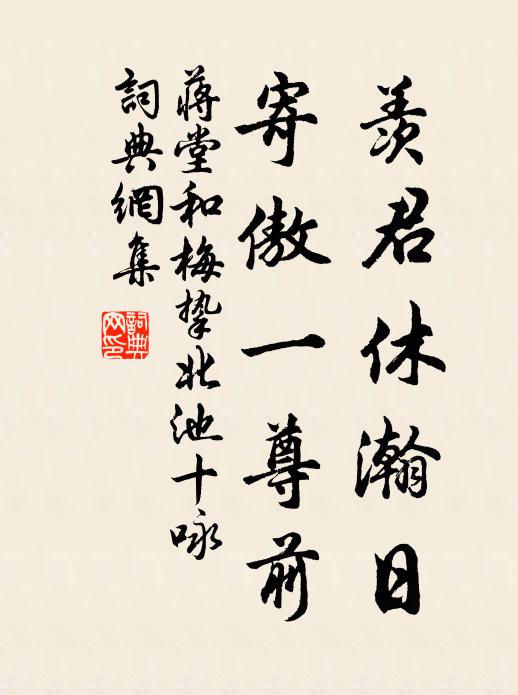 羨君休瀚日
寄傲一尊前
蔣堂和梅摯北池十咏
詞典網集
詞典網印